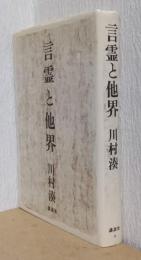 言霊と他界
川村湊
講談社
言霊と他界
川村湊
講談社